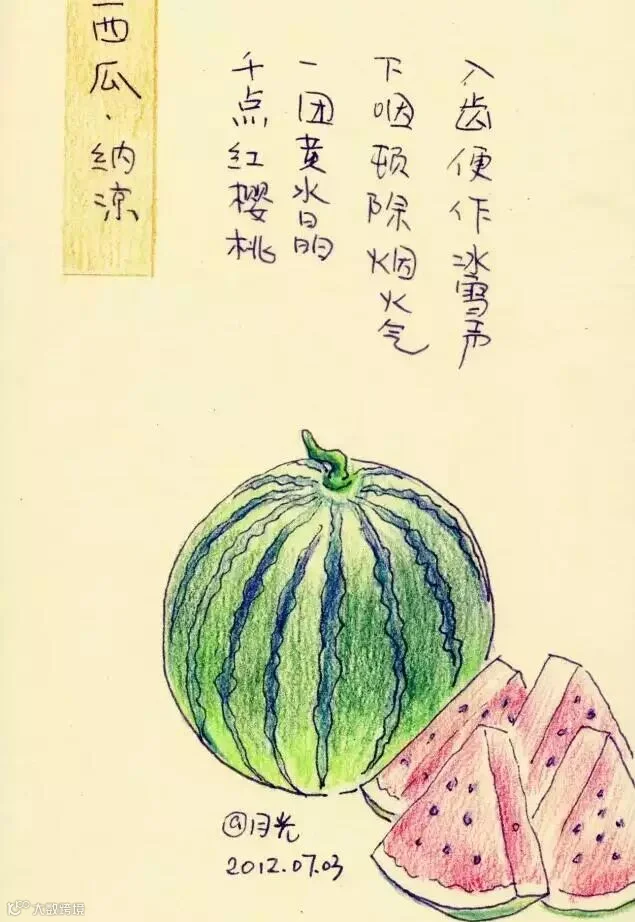 西瓜·纳凉
千点红樱桃
一团黄水晶
下咽顿除烟火气
入齿便作冰雪声
@月光
2012.07.03
大数跨境